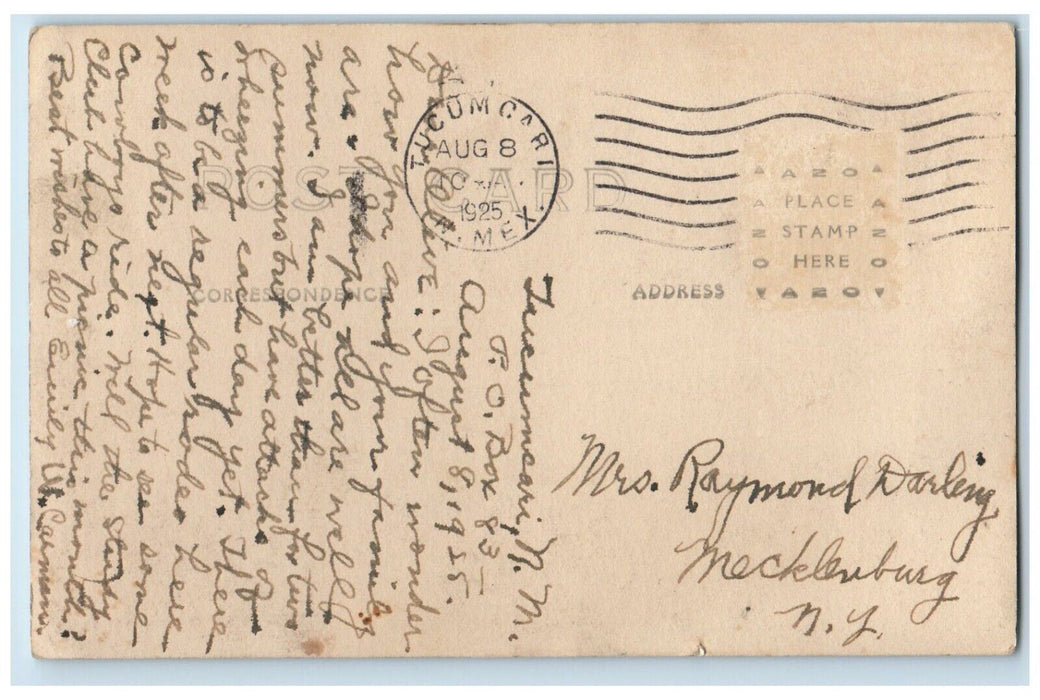 Tucumcari, N. M.
P. O. Box 83
August 8, 1925.
Dear Olive: I often wonder
how you and your family
are. I hope all are well
now. I am better than for two
summers but have attacks of
wheezing each day yet. There
is to be a regular rodeo here
week after next. Hope to see some
Cowboys ride. Will the Study
Club have a picnic this month?
Best wishes to all. Emily W. Carman.
POST CARD
CORRESPONDENCE
ADDRESS
TUCUMCARI
AUG 8
10 - A.
1925
N. MEX
AZO
PLACE
STAMP
HERE
AZO
Mrs. Raymond Darling
Mecklenburg
N. Y.